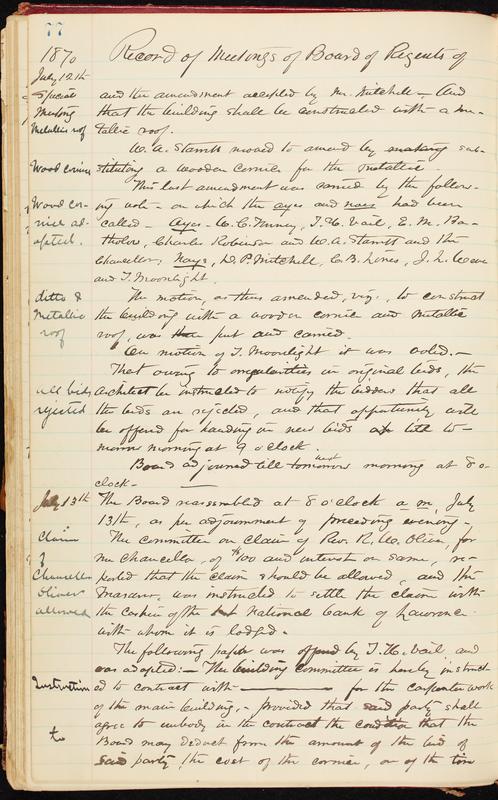 77
1870 Record of Meetings of Board of Regents of
July 12th
Special and the amendment accepted by Mr. Mitchell — And
Meeting that the building shall be constructed with a me-
Metallic roof tallic roof.
W. A. Stamtt moved to amend by making sub-
Wood cornice stituting a wooden cornice for the metallic
This last amendment was carried by the follow-
Wood cor- ing vote — on which the ayes and nays had been
nice ad- called — Ayes — W. C. Tenney, T. H. Vail, E. M. Ba-
opted. tholow, Charles Robinson and W. A. Stamtt and the
Chancellor, Nays, D. P. Mitchell, C. B. Lines, J. L.
and T. Moonlight.
ditto & The motion, as thus amended, viz., to construct
Metallic the building with a wooden cornice and metallic
roof roof, was then put and carried.
On motion of T. Moonlight it was voted. —
That owing to irregularities in original bids, the
all bids architect be instructed to notify the bidders that all
rejected the bids are rejected, and that opportunity will
be offered for handing in new bids till to-
morrow morning at 9 o'clock.
Board adjourned till tomorrow next morning at 8 o-
clock —
July 13th The Board reassembled at 8 o'clock a.m., July
13th, as per adjournment of preceding evening —
Claim The committee on claim of Rev. R. W. Oliver, for-
of mer Chancellor, of $100 and interest on same, re-
Chancellor ported that the claim should be allowed, and the
Oliver Treasurer, was instructed to settle the claim with
allowed the cashier of the National Bank of Lawrence
with whom it is lodged.
The following paper was offered by T. H. Vail and
was adopted: — The building committee is hereby instruct-
Instruction ed to contract with ———— for the carpenter work
of the main building, — provided that said party shall
agree to embody in the contract the condition that the
to Board may deduct from the amount of the bid of
said party, the cost of the cornice, or of the tin